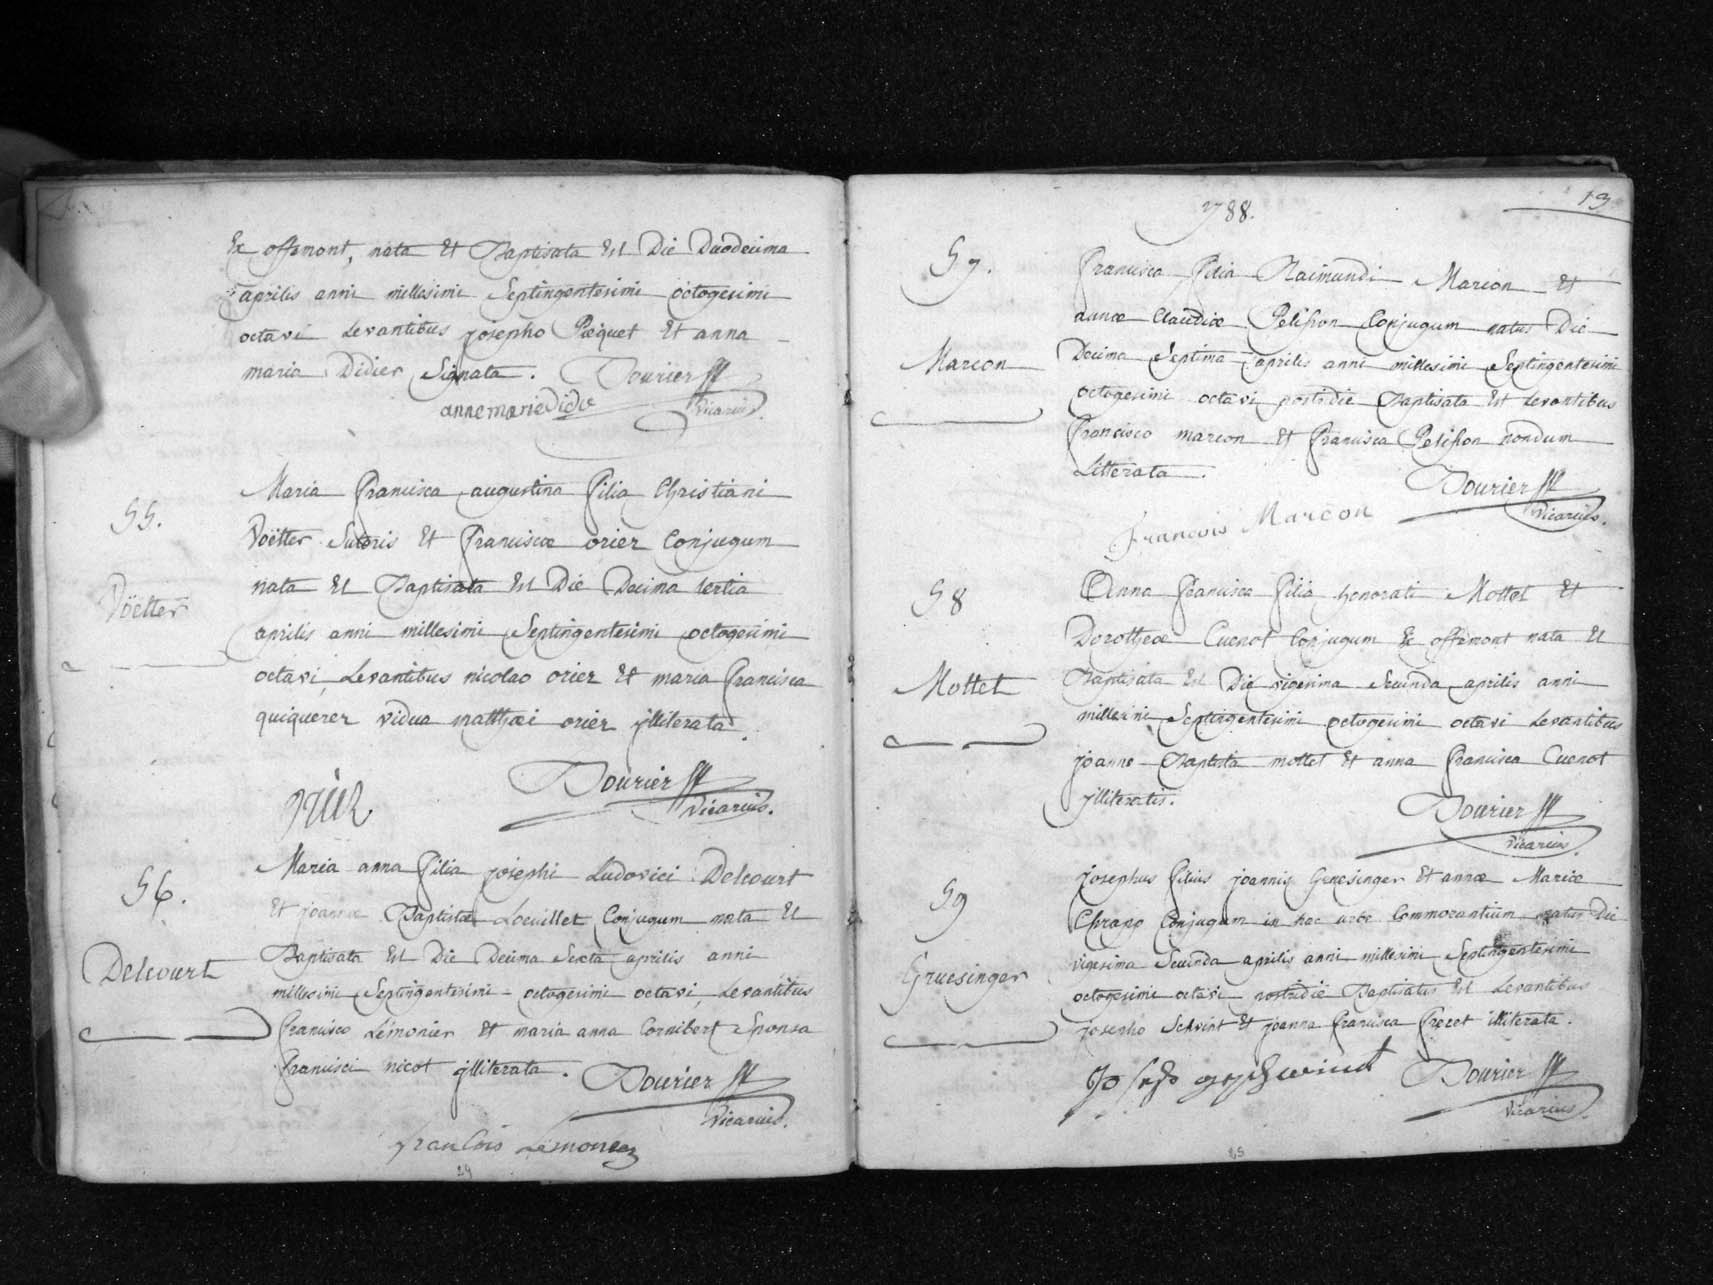 Ex offemont, nata Et Baptisata Est Die Duodecima
aprilis anni millesimi Septingentesimi octogesimi
octavi Levantibus josepho Pæquet Et anna
maria Didier Signata. Dourier
anne marie Didie Vicarius.
55.
Voëtter
Maria francisca augustina filia Christiani
Voëtter Sutoris Et franciscæ orier Conjugum
nata Et Baptisata Est Die Decima tertia
aprilis anni millesimi Septingentesimi octogesimi
octavi Levantibus nicolao orier Et maria francisca
quiquerez vidua matthæi orier jlliterata.
Dourier
Vicarius.
56.
Delcourt
Maria anna filia josephi Ludovici Delcourt
Et joannæ Baptistæ Loeuillet Conjugum nata Et
Baptisata Est Die Decima Sexta aprilis anni
millesimi Septingentesimi octogesimi octavi Levantibus
francisco Lémonier Et maria anna Cornibert Sponsa
francisci nicot jlliterata. Dourier
Vicarius.
francois Lemonier
24
1788.
13
57.
Marcon
francisca filia Raimundi Marcon Et
annæ Claudiæ Pelisson Conjugum natus Die
Decima Septima aprilis anni millesimi Septingentesimi
octogesimi octavi postridie Baptisata Est Levantibus
francisco marcon Et francisca Pelisson nondum
Litterata.
Dourier
Vicarius.
francois Marcon
58
Mottet
Anna francisca filia honorati Mottet Et
Dorotheæ Cuenot Conjugum Ex offemont nata Et
Baptisata Est Die vigesima Secunda aprilis anni
millesimi Septingentesimi octogesimi octavi Levantibus
joanne Baptista mottet Et anna francisca Cuenot
jlliteratis.
Dourier
Vicarius.
59
Gruesinger
josephus filius joannis Gruesinger Et annæ Mariæ
Chrapp Conjugum in hac urbe Commorantium natus Die
vigesima Secunda aprilis anni millesimi Septingentesimi
octogesimi octavi postridie Baptisatus Est Levantibus
josepho Schvint Et joanna francisca frezet illiterata.
Joseph gschwindt Dourier
Vicarius.
25